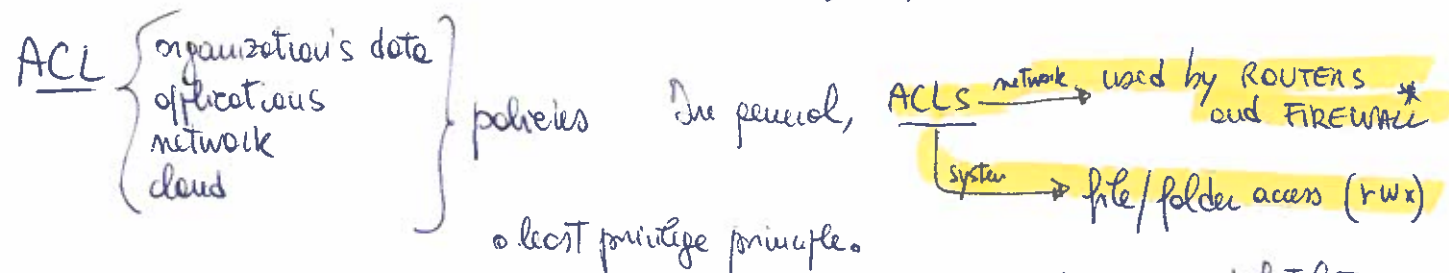 ACL { organization's data
applications
network
cloud } policies
In general, ACLS network → used by ROUTERS
and FIREWALL *
system → file/folder access (rwx)
• least privilege principle.